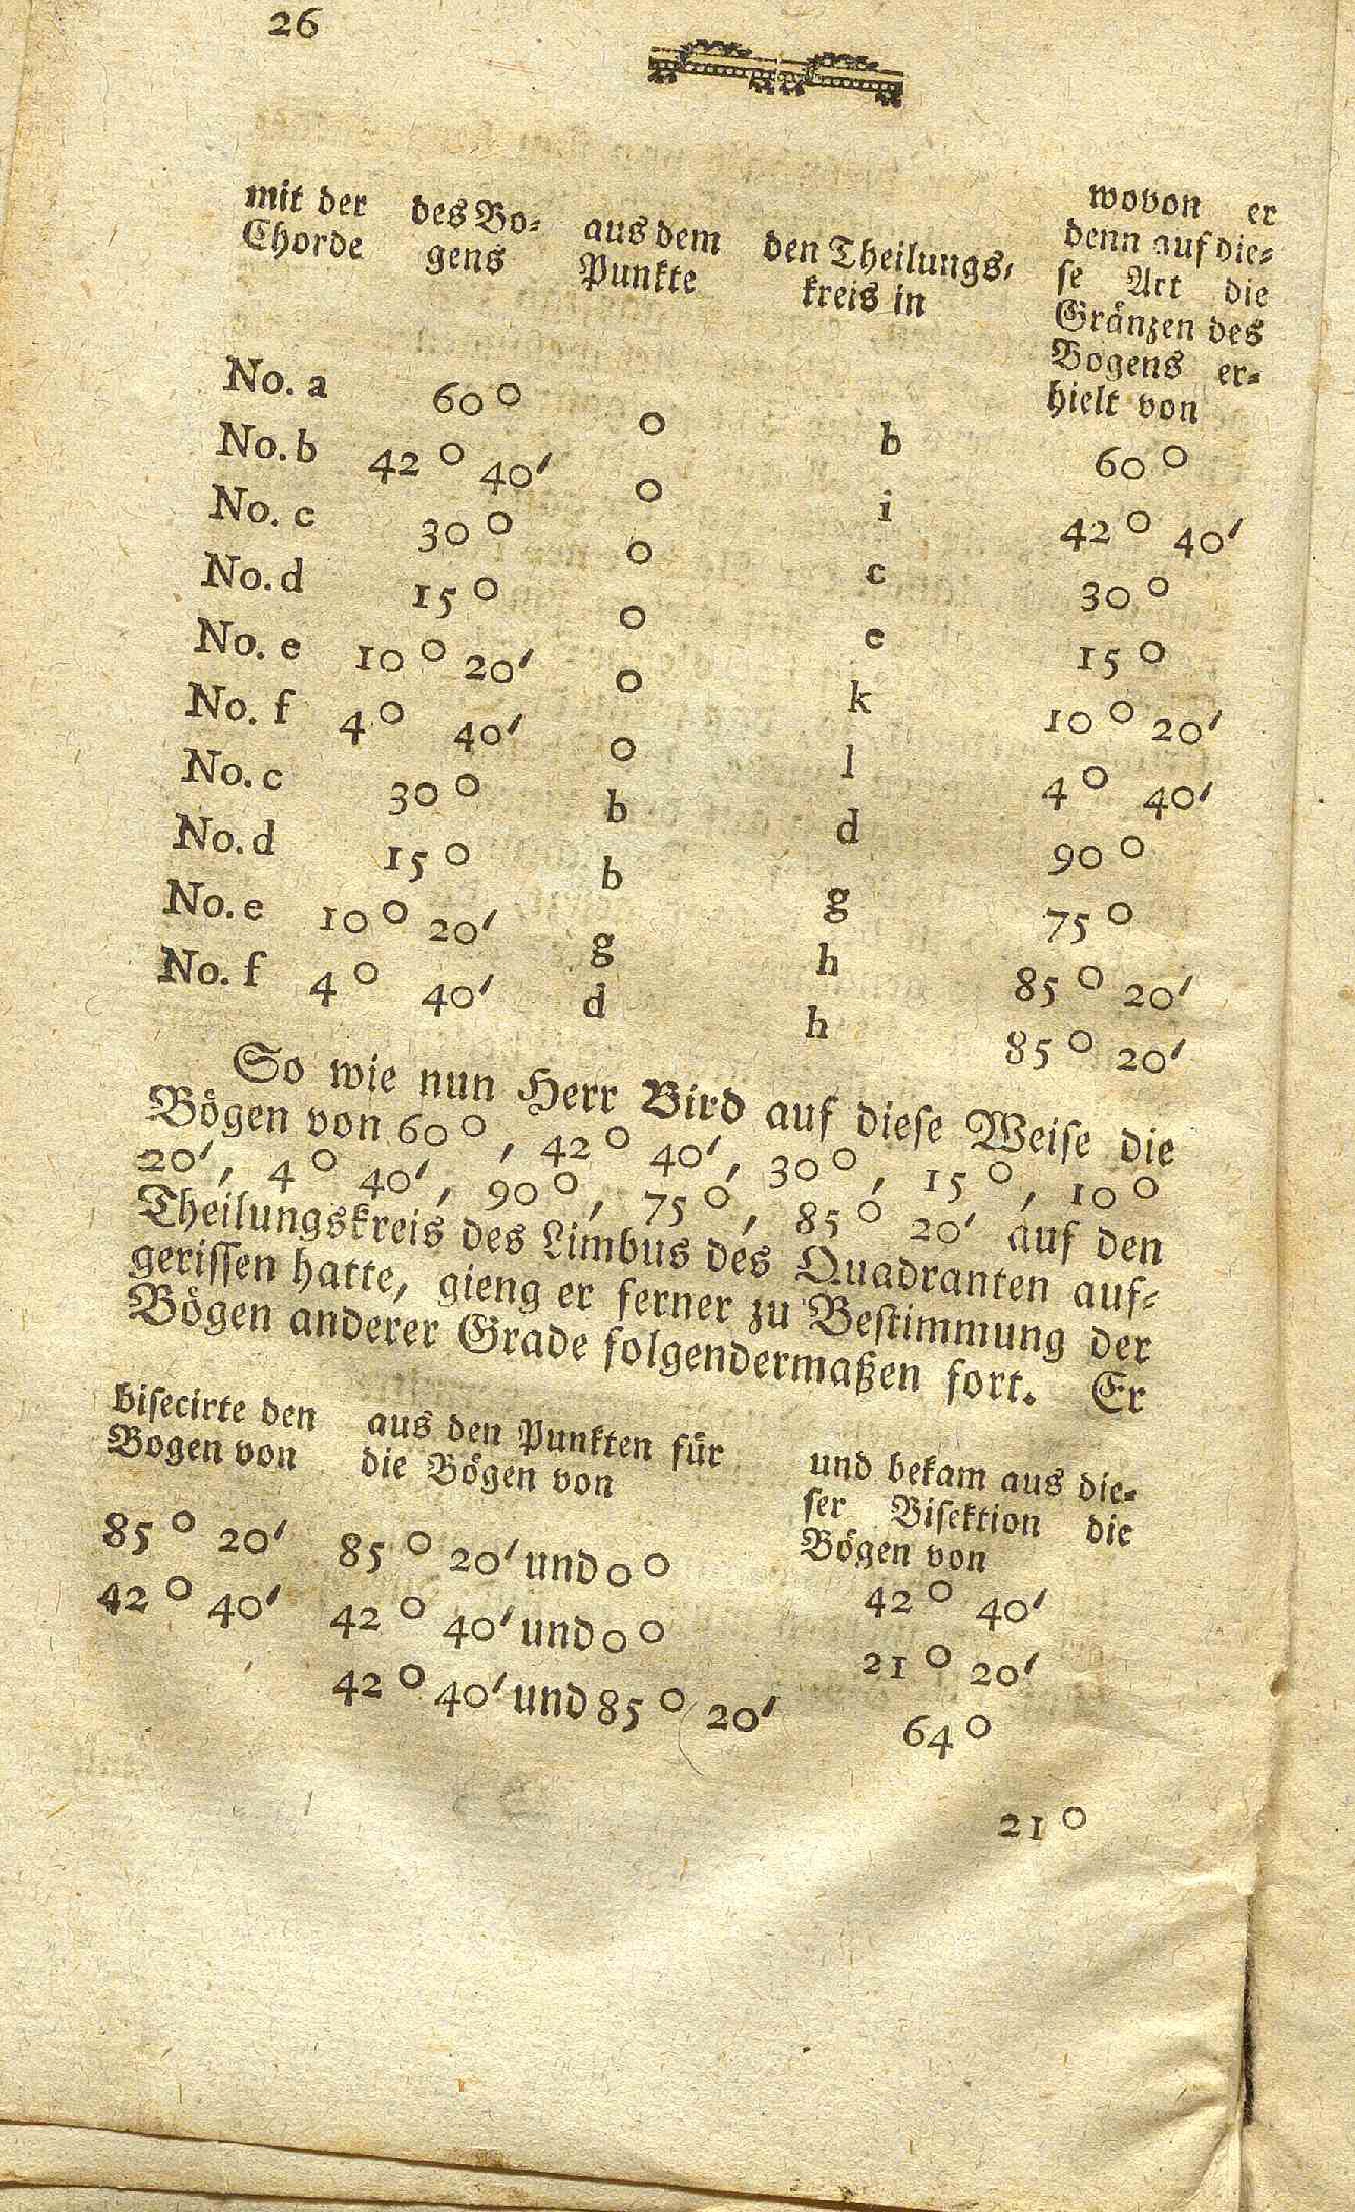 26
mit der des Bo- aus dem den Theilungs- wovon er
Chorde gens Punkte kreis in denn auf die-
se Art die
Gränzen des
Bogens er-
hielt von
No. a 60° 0 b 60°
No. b 42° 40′ 0 i 42° 40′
No. c 30° 0 c 30°
No. d 15° 0 e 15°
No. e 10° 20′ 0 k 10° 20′
No. f 4° 40′ 0 l 4° 40′
No. c 30° b d 90°
No. d 15° b g 75°
No. e 10° 20′ g h 85° 20′
No. f 4° 40′ d h 85° 20′
So wie nun Herr Bird auf dieſe Weiſe die
Bögen von 60°, 42° 40′, 30°, 15°, 10°
20′, 4° 40′, 90°, 75°, 85° 20′ auf den
Theilungskreis des Limbus des Quadranten auf-
geriſſen hatte, gieng er ferner zu Beſtimmung der
Bögen anderer Grade folgendermaßen fort. Er
biſecirte den aus den Punkten für und bekam aus die-
Bogen von die Bögen von ſer Biſektion die
Bögen von
85° 20′ 85° 20′ und 0° 42° 40′
42° 40′ 42° 40′ und 0° 21° 20′
42° 40′ und 85° 20′ 64°
21°